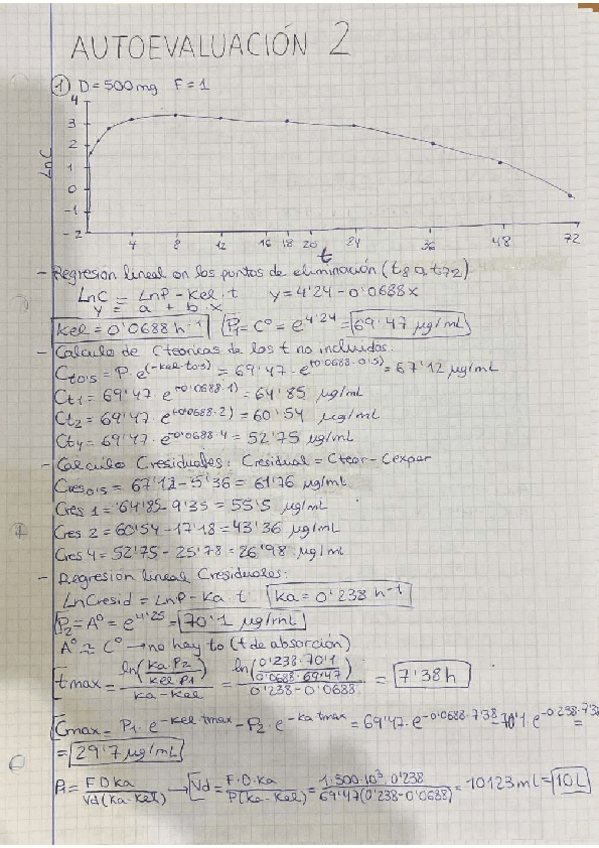 AUTOEVALUACIÓN 2
① D=500mg F=1
4
3
2
1
0
-1
-2
LnC
4 8 12 16 18 20 24 36 48 72
t
- Regresión lineal en los puntos de eliminación (t8 a t72)
LnC = LnP - Kel · t y=4'24-0'0688x
y = a + b · x
Kel = 0'0688 h-1 P1 = C° = e^4'24 = 69'47 µg/mL
- Cálculo de Cteóricas de los t no incluidos:
Ct0's = P · e^(-kel·t0's) = 69'47 · e^(-0'0688·0's) = 67'12 µg/mL
Ct1 = 69'47 · e^(-0'0688·1) = 64'85 µg/mL
Ct2 = 69'47 · e^(-0'0688·2) = 60'54 µg/mL
Ct4 = 69'47 · e^-0'0688·4 = 52'75 µg/mL
- Cálculo Cresiduales: Cresidual = Cteor - Cexper
Cres0's = 67'12 - 5'36 = 61'76 µg/mL
Cres 1 = 64'85 - 9'35 = 55'5 µg/mL
Cres 2 = 60'54 - 17'18 = 43'36 µg/mL
Cres 4 = 52'75 - 25'78 = 26'98 µg/mL
- Regresión lineal Cresiduales:
LnCresid = LnP - Ka · t Ka = 0'238 h-1
P2 = A° = e^4'25 = 70'1 µg/mL
A° ≈ C° → no hay t0 (t de absorción)
tmax = ln(Ka·P2 / Kel·P1) / Ka - Kel = ln(0'238·70'1 / 0'0688·69'47) / 0'238 - 0'0688 = 7'38 h
Cmax = P1 · e^-Kel·tmax - P2 · e^-Ka·tmax = 69'47 · e^-0'0688·7'38 - 70'1 · e^-0'238·7'38 =
= 29'7 µg/mL
P1 = F D Ka / Vd (Ka - Kel) → Vd = F · D · Ka / P (Ka - Kel) = 1·500·10^3·0'238 / 69'47 (0'238 - 0'0688) = 10123 mL = 10L